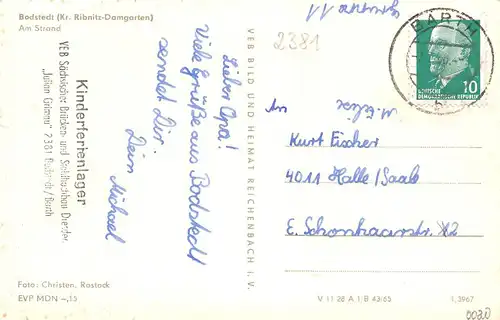 Bodstedt (Kr. Ribnitz-Damgarten)
Am Strand
Kinderferienlager
VEB Sächsischer Brücken- und Stahlhochbau Dresden
„Julian Grimau" 2381 Bodstedt/Barth
Lieber Opa!
Viele Grüße aus Bodstedt
sendet Dir
Dein Michael
Foto: Christen, Rostock
EVP MDN –,15
VEB BILD UND HEIMAT REICHENBACH I. V.
2381
BARTH
10
DEUTSCHE
DEMOKRATISCHE REPUBLIK
An
Kurt Fischer
4011 Halle/Saale
V 11 28 A 1/B 43/65
1,3967
0030